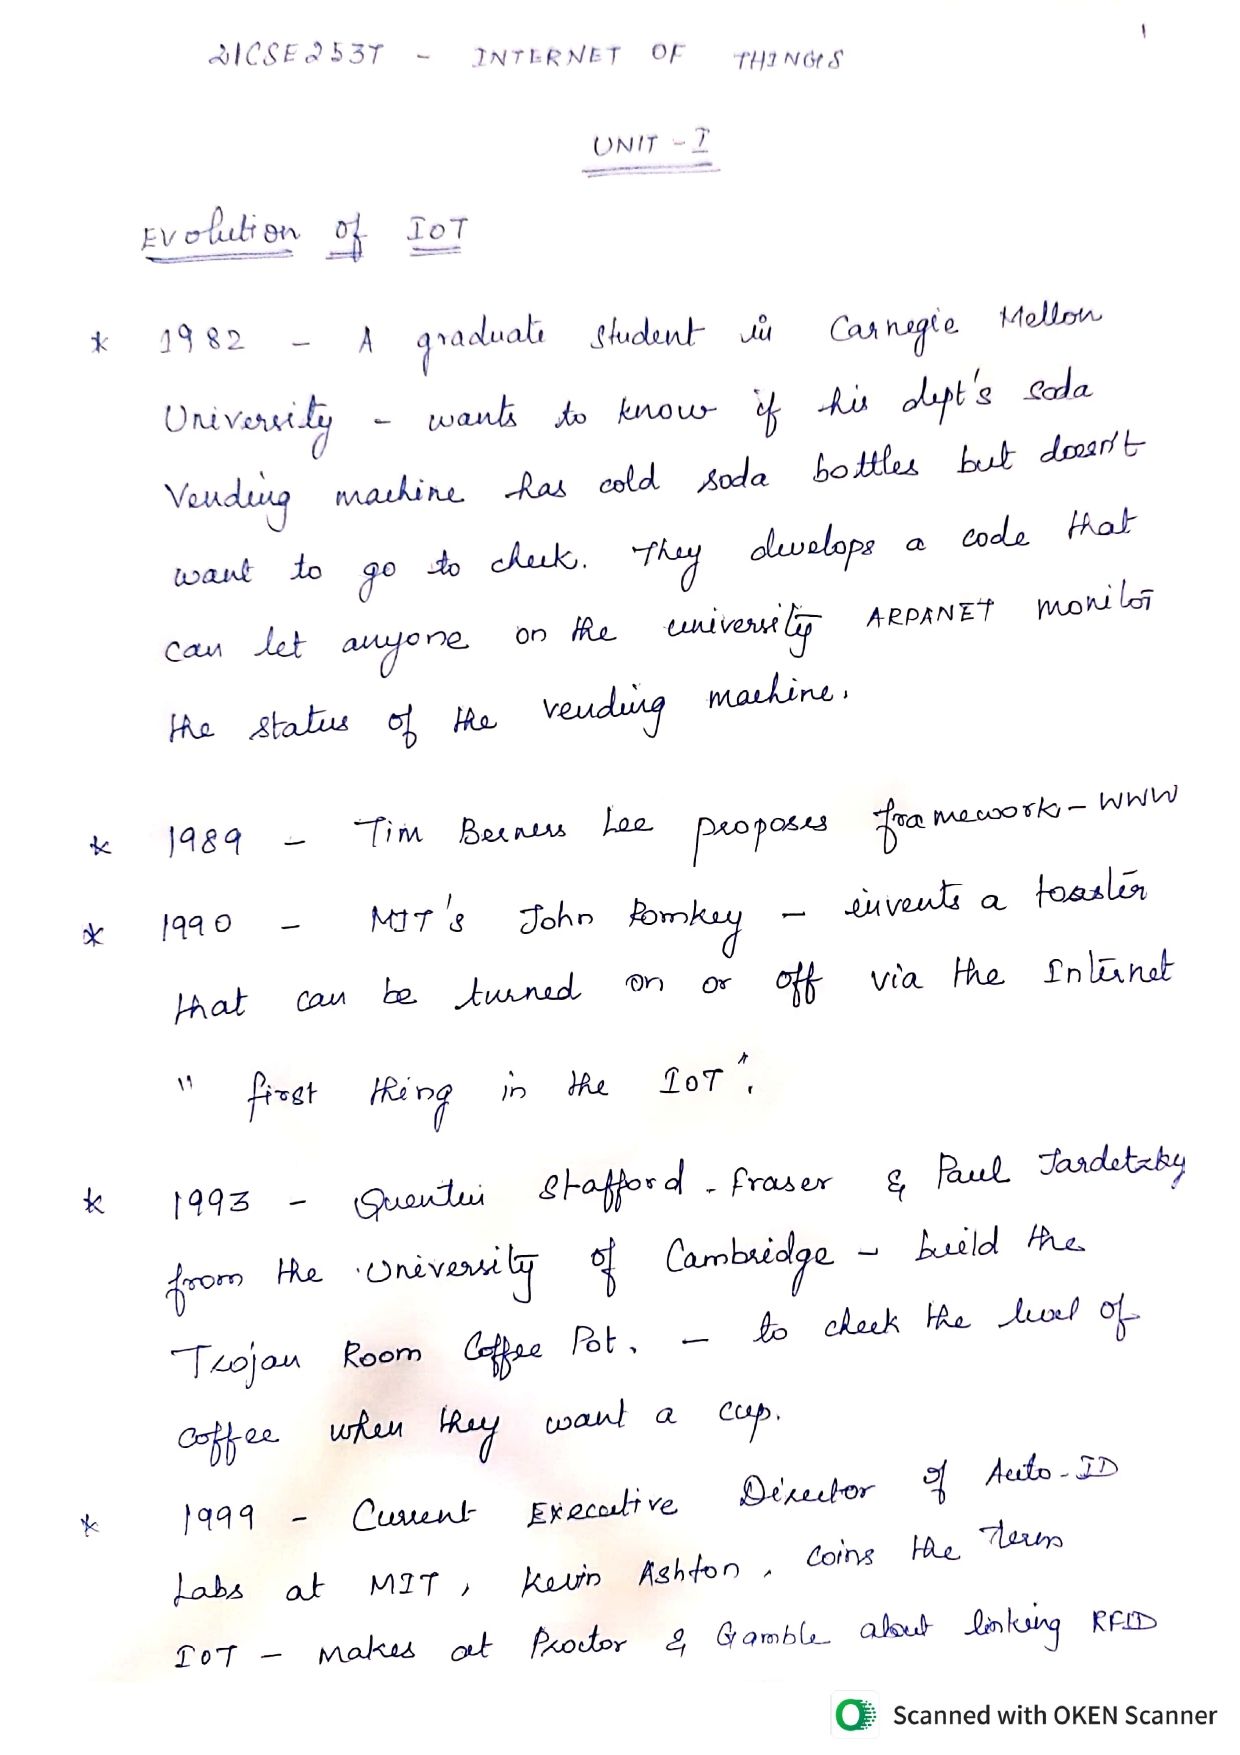 1
21CSE253T - INTERNET OF THINGS
UNIT - I
Evolution of IoT
* 1982 - A graduate student in Carnegie Mellon
University - wants to know if his dept's soda
Vending machine has cold soda bottles but doesn't
want to go to check. They develops a code that
can let anyone on the university ARPANET monitor
the status of the vending machine.
* 1989 - Tim Berners Lee proposes framework - WWW
* 1990 - MIT's John Romkey - invents a toaster
that can be turned on or off via the Internet
" first thing in the IoT".
* 1993 - Quentin Stafford - Fraser & Paul Jardetzky
from the University of Cambridge - build the
Trojan Room Coffee Pot. - to check the level of
coffee when they want a cup.
* 1999 - Current Executive Director of Auto-ID
Labs at MIT, Kevin Ashton, coins the term
IoT - makes at Proctor & Gamble about linking RFID
Scanned with OKEN Scanner